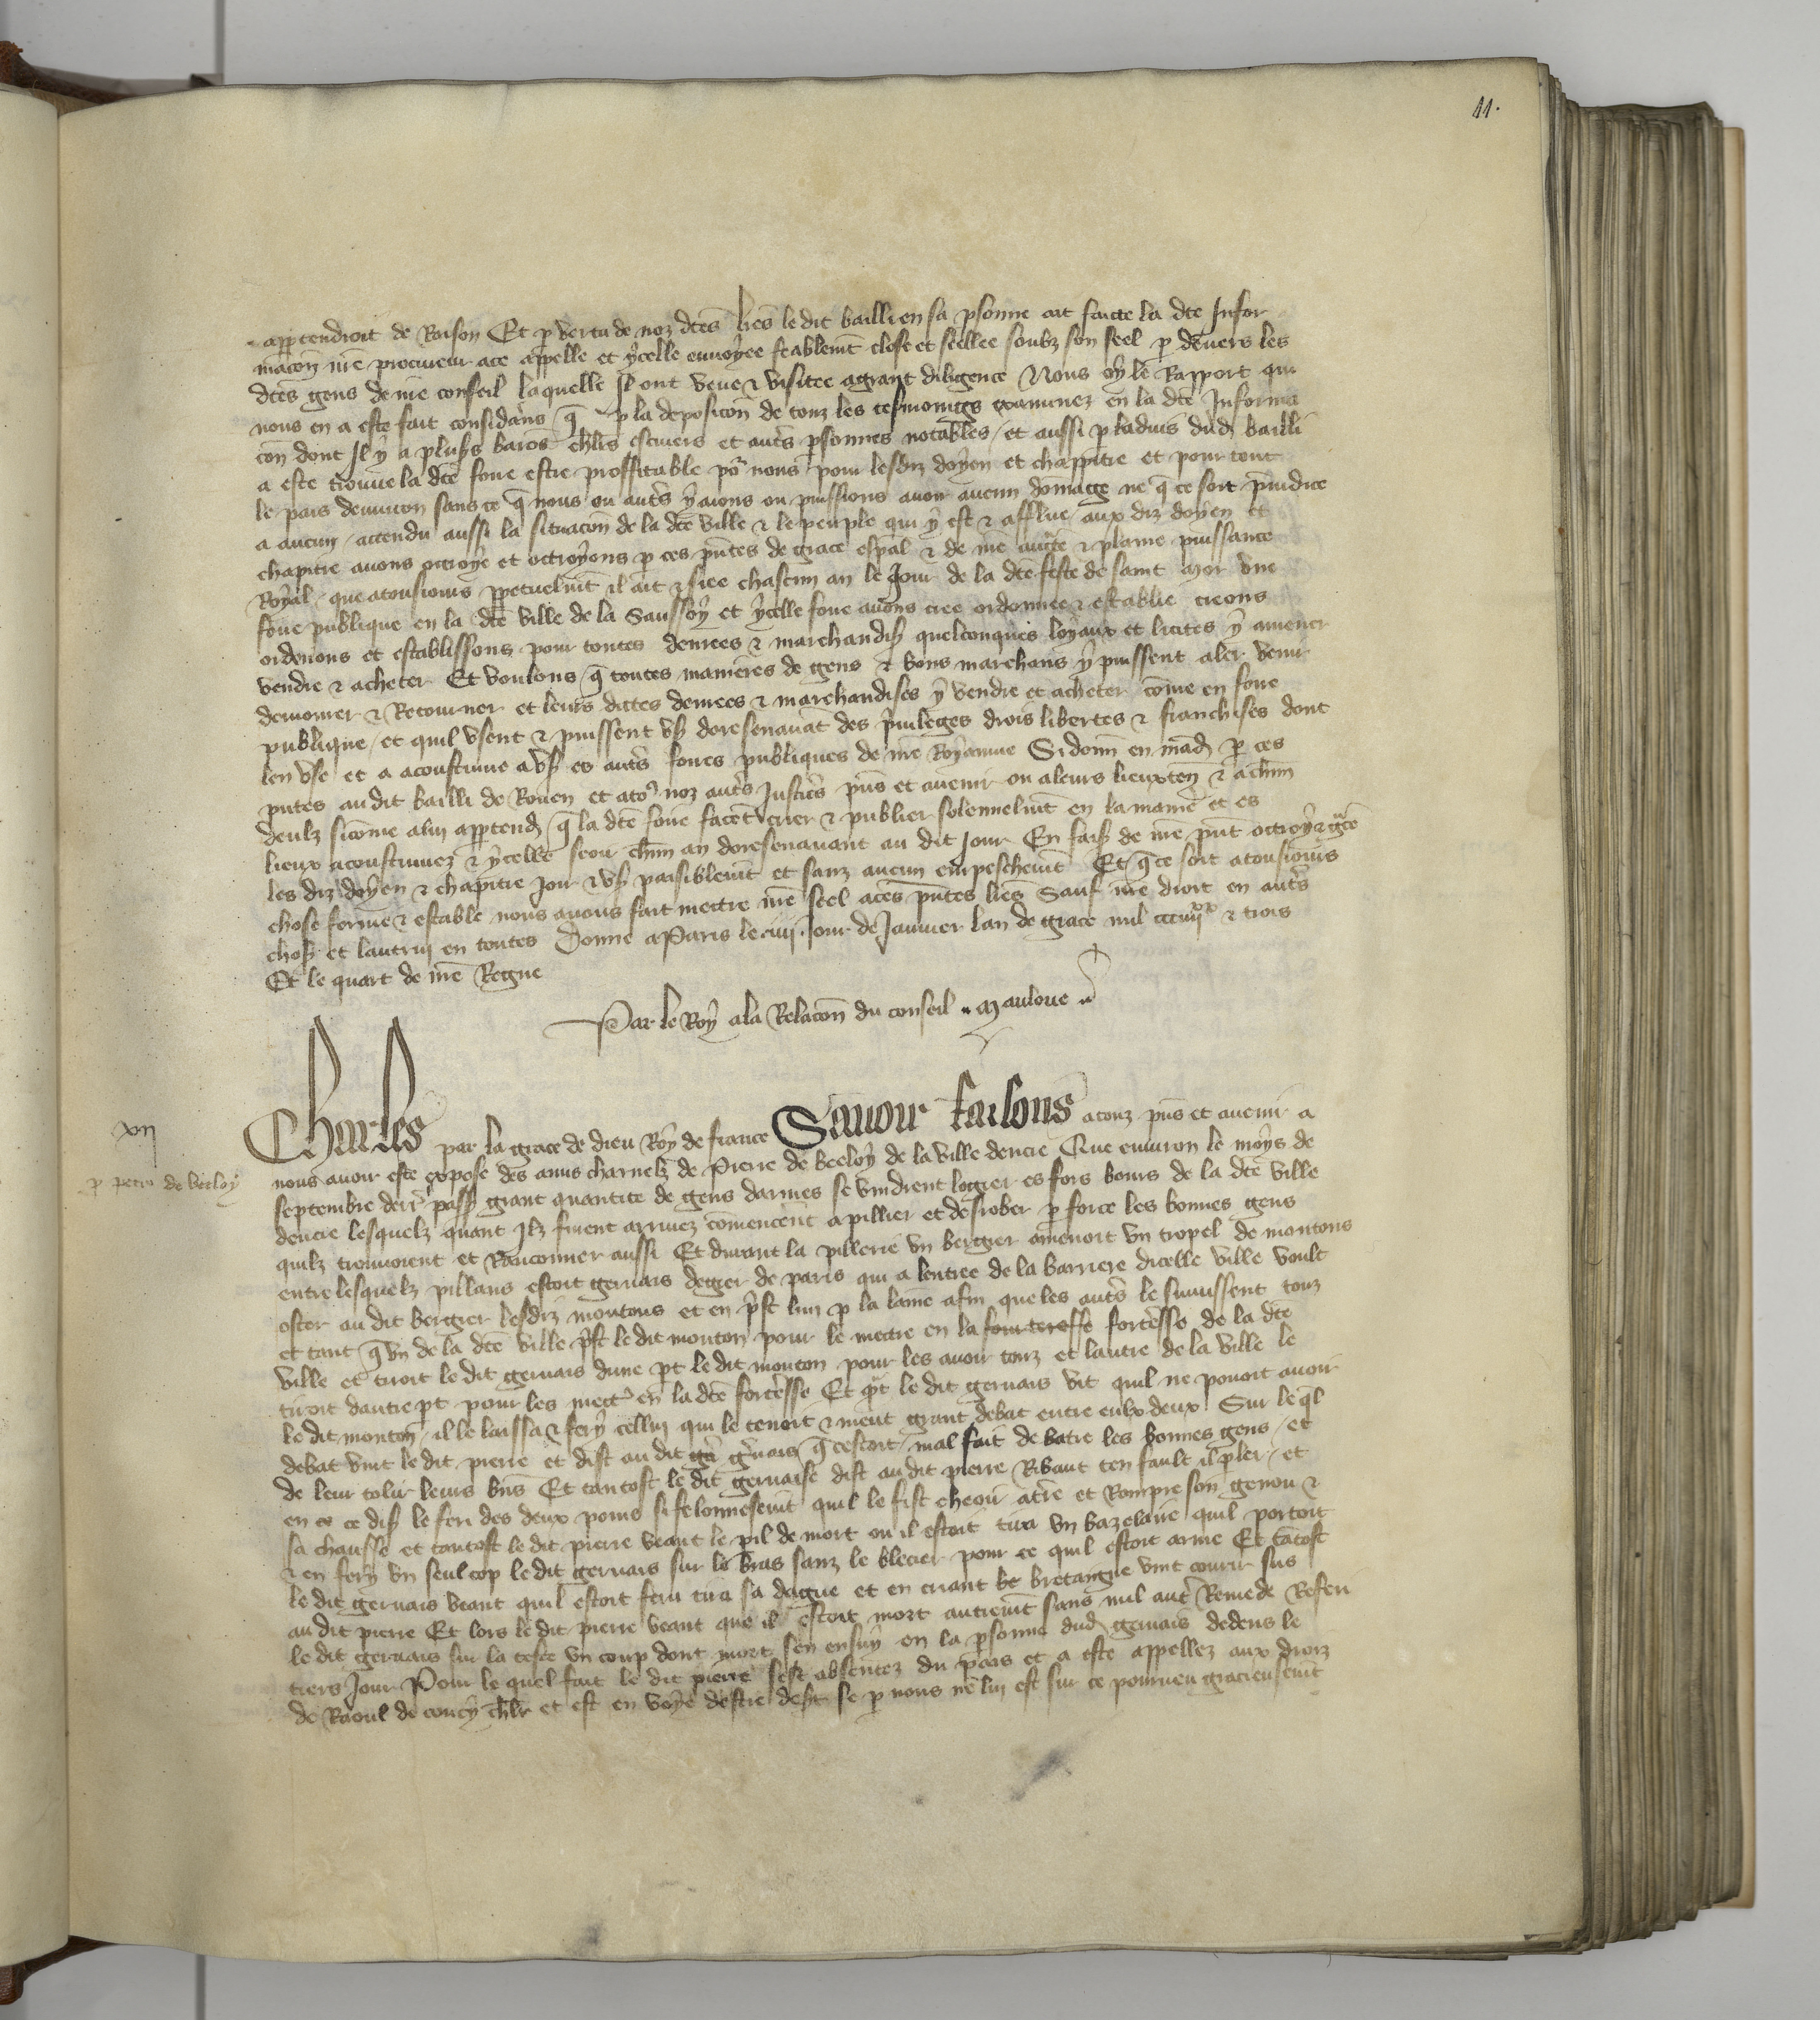 11.
appartendroit de Raison Et p vertu de noz dctes lres le dit bailli en sa psonne ait faicte la dcte Infor
macon nre procureur a ce appelle et ycelle envoyee feablemt close et seellee soubz son seel p devers les
dctes gens de nre conseil laquelle Il ont veue & visitee a grant diligence Nous oy le Rapport qui
nous en a este fait considerans q p la deposicon de touz les tesmoings examinez en la dcte Informa
con dont Il y a plusrs barons chlrs escuiers et autrs psonnes notables / et aussi p ladvis dud bailli
a este trouve la dcte foire estre proffitable por nous pour lesdiz doyen et chappitre et pour tout
le pais denviron sans ce q nous ou autrs y aions ou puissions avoir aucun domage ne q ce soit preiudice
a aucun / attendu aussi la situacon de la dcte ville & le peuple qui y est & afflue / aux diz doyen et
chapitre avons ottroye et ottroyons p ces pntes de grace espal & de nre aucte & plaine puissance
Royal / que a tousiours ppetuelmt il ait & siee chascun an le Jour de la dcte feste de saint mor vne
foire publique en la dcte ville de la Saussoy et ycelle foire avons cree ordonnee & establie creons
ordenons et establissons pour toutes denrees & marchandises quelconques loyaux et licites y amener
vendre & acheter Et voulons q toutes manieres de gens & bons marchans y puissent aler venir
demourer & Retourner et leurs dictes denrees & marchandises y vendre et acheter come en foire
publique / et quil vsent & puissent vser doresenavat des privileges drois libertes & franchises dont
len vse et a acoustume a vser es autrs foires publiques de nre Royaume Si donn en mad p ces
pntes au dit bailli de Rouen et a toz noz autrs Justicrs pns et avenir ou a leurs lieuxten & a chun
deulz sicome a lui appartend q la dcte foire facet crier & publier solennelmt en la maniere et es
lieux acoustumez & ycelle seoir chun an doresenavant au dit Jour En fais de nre pnt ottroy & grce
les diz doyen & chapitre Joir & vser paisiblemt et sanz aucun empeschemt Et q ce soit a tousiours
chose ferme & estable nous avons fait mettre nre seel a ces pntes lres Sauf nre droit en autrs
choses et lautruy en toutes Donne a Paris le iiij Jour de Janvier lan de grace mil ccciiijxx & trois
Et le quart de nre Regne
Par le Roy a la Relacon du conseil maulone
xii
p petro de beeloy
Charles par la grace de dieu Roy de france Savoir faisons a touz pns et avenir a
nous avoir este expose des amis charnelz de Pierre de beeloy de la ville dencre Que environ le moys de
septembre derr passe grant quantite de gens darmes se vindrent logier es fors bours de la dcte ville
dencre lesquelz quant Ilz furent arrivez comencerent a pillier et desrober p force les bonnes gens
quilz trouvoient et Ranconner aussi Et durant la pillerie vn bergier amenoit vn tropel de moutons
entre lesquelz pillans estoit gervais degier de paris qui a lentree de la barriere dicelle ville voult
oster au dit bergier lesdiz moutons et en prist lun p la laine afin que les autrs le suivissent touz
et tant q vn de la dcte ville prist le dit mouton pour le mettre en la fourteresse forteresse de la dcte
ville et tiroit le dit gervais dune pt le dit mouton pour les avoir touz et lautre de la ville le
tiroit dautre pt pour les mettr en la dcte forteresse Et qnt le dit gervais vit quil ne povoit avoir
le dit mouton / il le laissa & fery cellui qui le tenoit & meut grant debat entre eulx deux Sur le ql
debat vint le dit pierre et dist au dit gr grvais q cestoit mal fait de batre les bonnes gens / et
de leur tolir leurs bns Et tantost le dit gervaise dist au dit pierre Ribaut ten fault il pler / et
en ce ce dis le feri des deux poins si felonnesemt quil le fist cheoir a tre et Rompre son genou &
sa chausse et tantost le dit pierre veant le pil de mort ou il estoit tira vn bazelaire quil portoit
& en fery vn seul cop le dit gervais sur le bras sanz le blecier pour ce quil estoit arme Et tatost
le dit gervais veant quil estoit feru tira sa dague et en criant be bretaigne vint courir sus
au dit pierre Et lors le dit pierre veant que il estoit mort autremt sans nul autr Remede Referi
le dit gervais sur la teste vn coup dont mort sen ensuy en la psonne dud gervais dedens le
tiers Jour Pour le quel fait le dit pierre sest absentez du pais et a este appellez aux droiz
de Raoul de coucy chlr et est en voye destre desert se p nous ne lui est sur ce pourveu gracieusemt